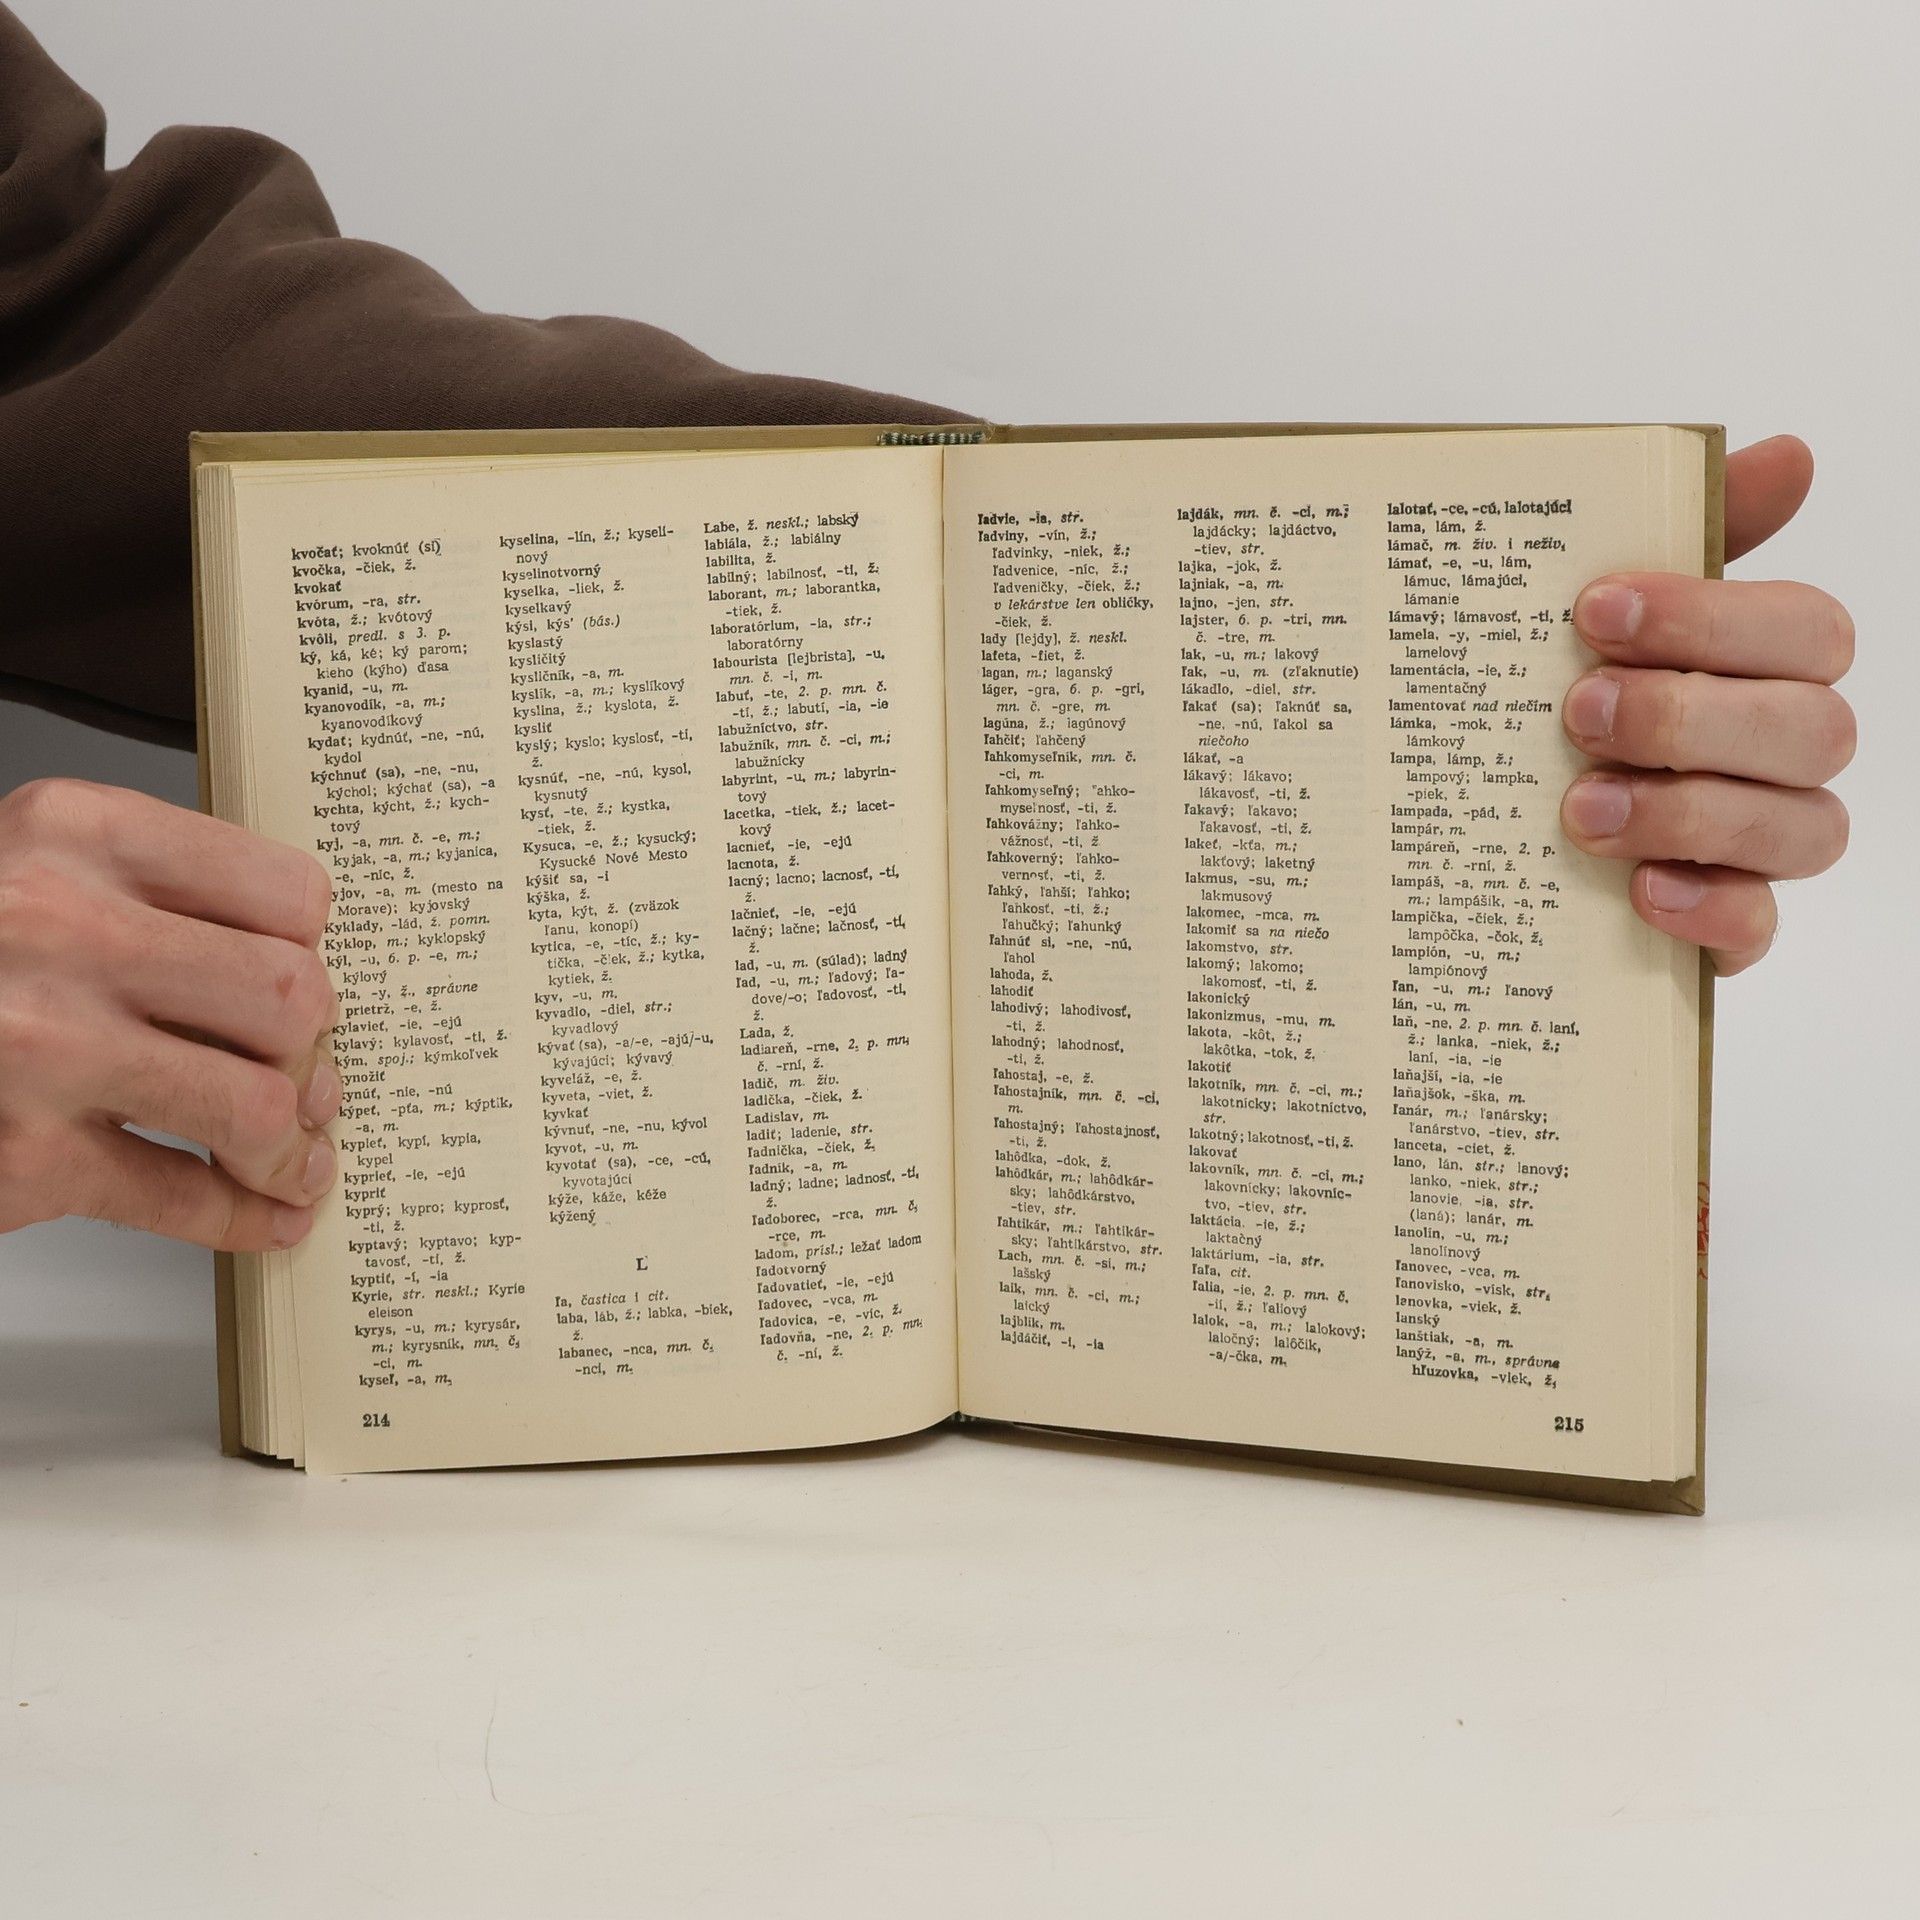 kvočať; kvoknúť (si)
kvočka, -čiek, ž.
kvokať
kvórum, -ra, str.
kvóta, ž.; kvótový
kvôli, predl. s 3. p.
ký, ká, ké; ký parom;
kieho (kýho) ďasa
kyanid, -u, m.
kyanovodík, -a, m.;
kyanovodíkový
kydať; kydnúť, -ne, -nú,
kydol
kýchnuť (sa), -ne, -nu,
kýchol; kýchať (sa), -a
kychta, kýcht, ž.; kych-
tový
kyj, -a, mn. č. -e, m.;
kyjak, -a, m.; kyjanica,
-e, -níc, ž.
yjov, -a, m. (mesto na
Morave); kyjovský
Kyklady, -lád, ž. pomn.
Kyklop, m.; kyklopský
kýl, -u, 6. p. -e, m.;
kýlový
yla, -y, ž., správne
prietrž, -e, ž.
kylavieť, -ie, -ejú
kylavý; kylavosť, -ti, ž.
kým, spoj.; kýmkoľvek
kynožiť
kynúť, -nie, -nú
kýpeť, -pťa, m.; kýptik,
-a, m.
kypieť, kypí, kypia,
kypel
kyprieť, -ie, -ejú
kypriť
kyprý; kypro; kyprosť,
-ti, ž.
kyptavý; kyptavo; kyp-
tavosť, -ti, ž.
kyptiť, -í, -ia
Kyrie, str. neskl.; Kyrie
eleison
kyrys, -u, m.; kyrysár,
m.; kyrysník, mn. č.
-ci, m.
kyseľ, -a, m.
kyselina, -lín, ž.; kyseli-
nový
kyselinotvorný
kyselka, -liek, ž.
kyselkavý
kýsi, kýs' (bás.)
kyslastý
kysličitý
kysličník, -a, m.
kyslík, -a, m.; kyslíkový
kyslina, ž.; kyslota, ž.
kysliť
kyslý; kyslo; kyslosť, -ti,
ž.
kysnúť, -ne, -nú, kysol,
kysnutý
kysť, -te, ž.; kystka,
-tiek, ž.
Kysuca, -e, ž.; kysucký;
Kysucké Nové Mesto
kýšiť sa, -i
kýška, ž.
kyta, kýt, ž. (zväzok
ľanu, konopí)
kytica, -e, -tíc, ž.; ky-
tička, -čiek, ž.; kytka,
kytiek, ž.
kyv, -u, m.
kyvadlo, -diel, str.;
kyvadlový
kývať (sa), -a/-e, -ajú/-u,
kývajúci; kývavý
kyveláž, -e, ž.
kyveta, -viet, ž.
kyvkať
kývnuť, -ne, -nu, kývol
kyvot, -u, m.
kyvotať (sa), -ce, -cú,
kyvotajúci
kýže, káže, kéže
kýžený
Ľ
ľa, častica i cit.
laba, láb, ž.; labka, -biek,
ž.
labanec, -nca, mn. č.
-nci, m.
Labe, ž. neskl.; labský
labiála, ž.; labiálny
labilita, ž.
labilný; labilnosť, -ti, ž.
laborant, m.; laborantka,
-tiek, ž.
laboratórium, -ia, str.;
laboratórny
labourista [lejbrista], -u,
mn. č. -i, m.
labuť, -te, 2. p. mn. č.
-tí, ž.; labutí, -ia, -ie
labužníctvo, str.
labužník, mn. č. -ci, m.;
labužnícky
labyrint, -u, m.; labyrin-
tový
lacetka, -tiek, ž.; lacet-
kový
lacnieť, -ie, -ejú
lacnota, ž.
lacný; lacno; lacnosť, -ti,
ž.
lačnieť, -ie, -ejú
lačný; lačne; lačnosť, -ti,
ž.
lad, -u, m. (súlad); ladný
ľad, -u, m.; ľadový; ľa-
dove/-o; ľadovosť, -ti,
ž.
Lada, ž.
ladiareň, -rne, 2. p. mn.
č. -rní, ž.
ladič, m. živ.
ladička, -čiek, ž.
Ladislav, m.
ladiť; ladenie, str.
ľadnička, -čiek, ž.
ľadník, -a, m.
ladný; ladne; ladnosť, -ti,
ž.
ľadoborec, -rca, mn. č.
-rce, m.
ladom, prísl.; ležať ladom
ľadotvorný
ľadovatieť, -ie, -ejú
ľadovec, -vca, m.
ľadovica, -e, -víc, ž.
ľadovňa, -ne, 2. p. mn.
č. -ní, ž.
214
ľadvie, -ia, str.
ľadviny, -vín, ž.;
ľadvinky, -niek, ž.;
ľadvenice, -níc, ž.;
ľadveničky, -čiek, ž.;
v lekárstve len obličky,
-čiek, ž.
lady [lejdy], ž. neskl.
lafeta, -fiet, ž.
lagan, m.; laganský
láger, -gra, 6. p. -gri,
mn. č. -gre, m.
lagúna, ž.; lagúnový
ľahčiť; ľahčený
ľahkomyseľník, mn. č.
-ci, m.
ľahkomyseľný; ľahko-
myseľnosť, -ti, ž.
ľahkovážny; ľahko-
vážnosť, -ti, ž
ľahkoverný; ľahko-
vernosť, -ti, ž.
ľahký, ľahší; ľahko;
ľahkosť, -ti, ž.;
ľahučký; ľahunký
ľahnúť si, -ne, -nú,
ľahol
lahoda, ž.
lahodiť
lahodivý; lahodivosť,
-ti, ž.
lahodný; lahodnosť,
-ti, ž.
ľahostaj, -e, ž.
ľahostajník, mn. č. -ci,
m.
ľahostajný; ľahostajnosť,
-ti, ž.
lahôdka, -dok, ž.
lahôdkár, m.; lahôdkár-
sky; lahôdkárstvo,
-tiev, str.
ľahtikár, m.; ľahtikár-
sky; ľahtikárstvo, str.
Lach, mn. č. -si, m.;
lašský
laik, mn. č. -ci, m.;
laický
lajblík, m.
lajdáčiť, -i, -ia
lajdák, mn. č. -ci, m.;
lajdácky; lajdáctvo,
-tiev, str.
lajka, -jok, ž.
lajniak, -a, m.
lajno, -jen, str.
lajster, 6. p. -tri, mn.
č. -tre, m.
lak, -u, m.; lakový
ľak, -u, m. (zľaknutie)
lákadlo, -diel, str.
ľakať (sa); ľaknúť sa,
-ne, -nú, ľakol sa
niečoho
lákať, -a
lákavý; lákavo;
lákavosť, -ti, ž.
ľakavý; ľakavo;
ľakavosť, -ti, ž.
lakeť, -kťa, m.;
lakťový; laketný
lakmus, -su, m.;
lakmusový
lakomec, -mca, m.
lakomiť sa na niečo
lakomstvo, str.
lakomý; lakomo;
lakomosť, -ti, ž.
lakonický
lakonizmus, -mu, m.
lakota, -kôt, ž.;
lakôtka, -tok, ž.
lakotiť
lakotník, mn. č. -ci, m.;
lakotnícky; lakotníctvo,
str.
lakotný; lakotnosť, -ti, ž.
lakovať
lakovník, mn. č. -ci, m.;
lakovnícky; lakovníc-
tvo, -tiev, str.
laktácia, -ie, ž.;
laktačný
laktárium, -ia, str.
ľaľa, cit.
ľalia, -ie, 2. p. mn. č.
-ií, ž.; ľaliový
lalok, -a, m.; lalokový;
laločný; lalôčik,
-a/-čka, m.
lalotať, -ce, -cú, lalotajúci
lama, lám, ž.
lámač, m. živ. i neživ.
lámať, -e, -u, lám,
lámuc, lámajúci,
lámanie
lámavý; lámavosť, -ti, ž.
lamela, -y, -miel, ž.;
lamelový
lamentácia, -ie, ž.;
lamentačný
lamentovať nad niečím
lámka, -mok, ž.;
lámkový
lampa, lámp, ž.;
lampový; lampka,
-piek, ž.
lampada, -pád, ž.
lampár, m.
lampáreň, -rne, 2. p.
mn. č. -rní, ž.
lampáš, -a, mn. č. -e,
m.; lampášik, -a, m.
lampička, -čiek, ž.;
lampôčka, -čok, ž.
lampión, -u, m.;
lampiónový
ľan, -u, m.; ľanový
lán, -u, m.
laň, -ne, 2. p. mn. č. laní,
ž.; lanka, -niek, ž.;
laní, -ia, -ie
laňajší, -ia, -ie
laňajšok, -ška, m.
ľanár, m.; ľanársky;
ľanárstvo, -tiev, str.
lanceta, -ciet, ž.
lano, lán, str.; lanový;
lanko, -niek, str.;
lanovie, -ia, str.
(laná); lanár, m.
lanolín, -u, m.;
lanolínový
ľanovec, -vca, m.
ľanovisko, -vísk, str.
lanovka, -viek, ž.
lanský
lanštiak, -a, m.
lanýž, -a, m., správne
hľuzovka, -viek, ž.
215